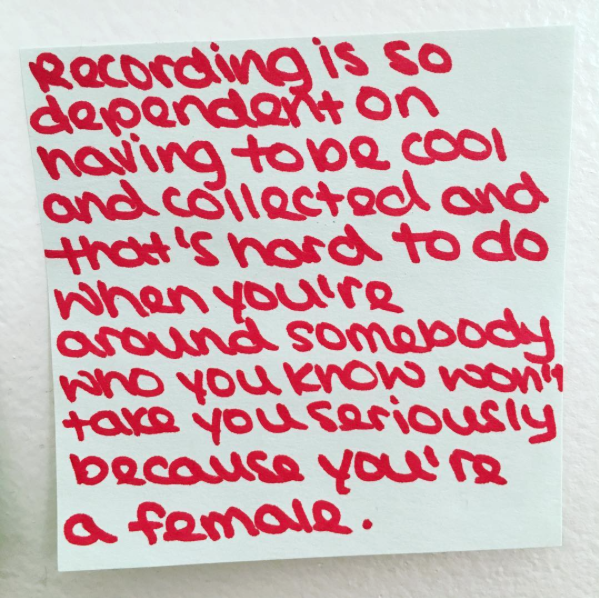 Recording is so
dependent on
having to be cool
and collected and
that's hard to do
when you're
around somebody
who you know won't
take you seriously
because you're
a female.